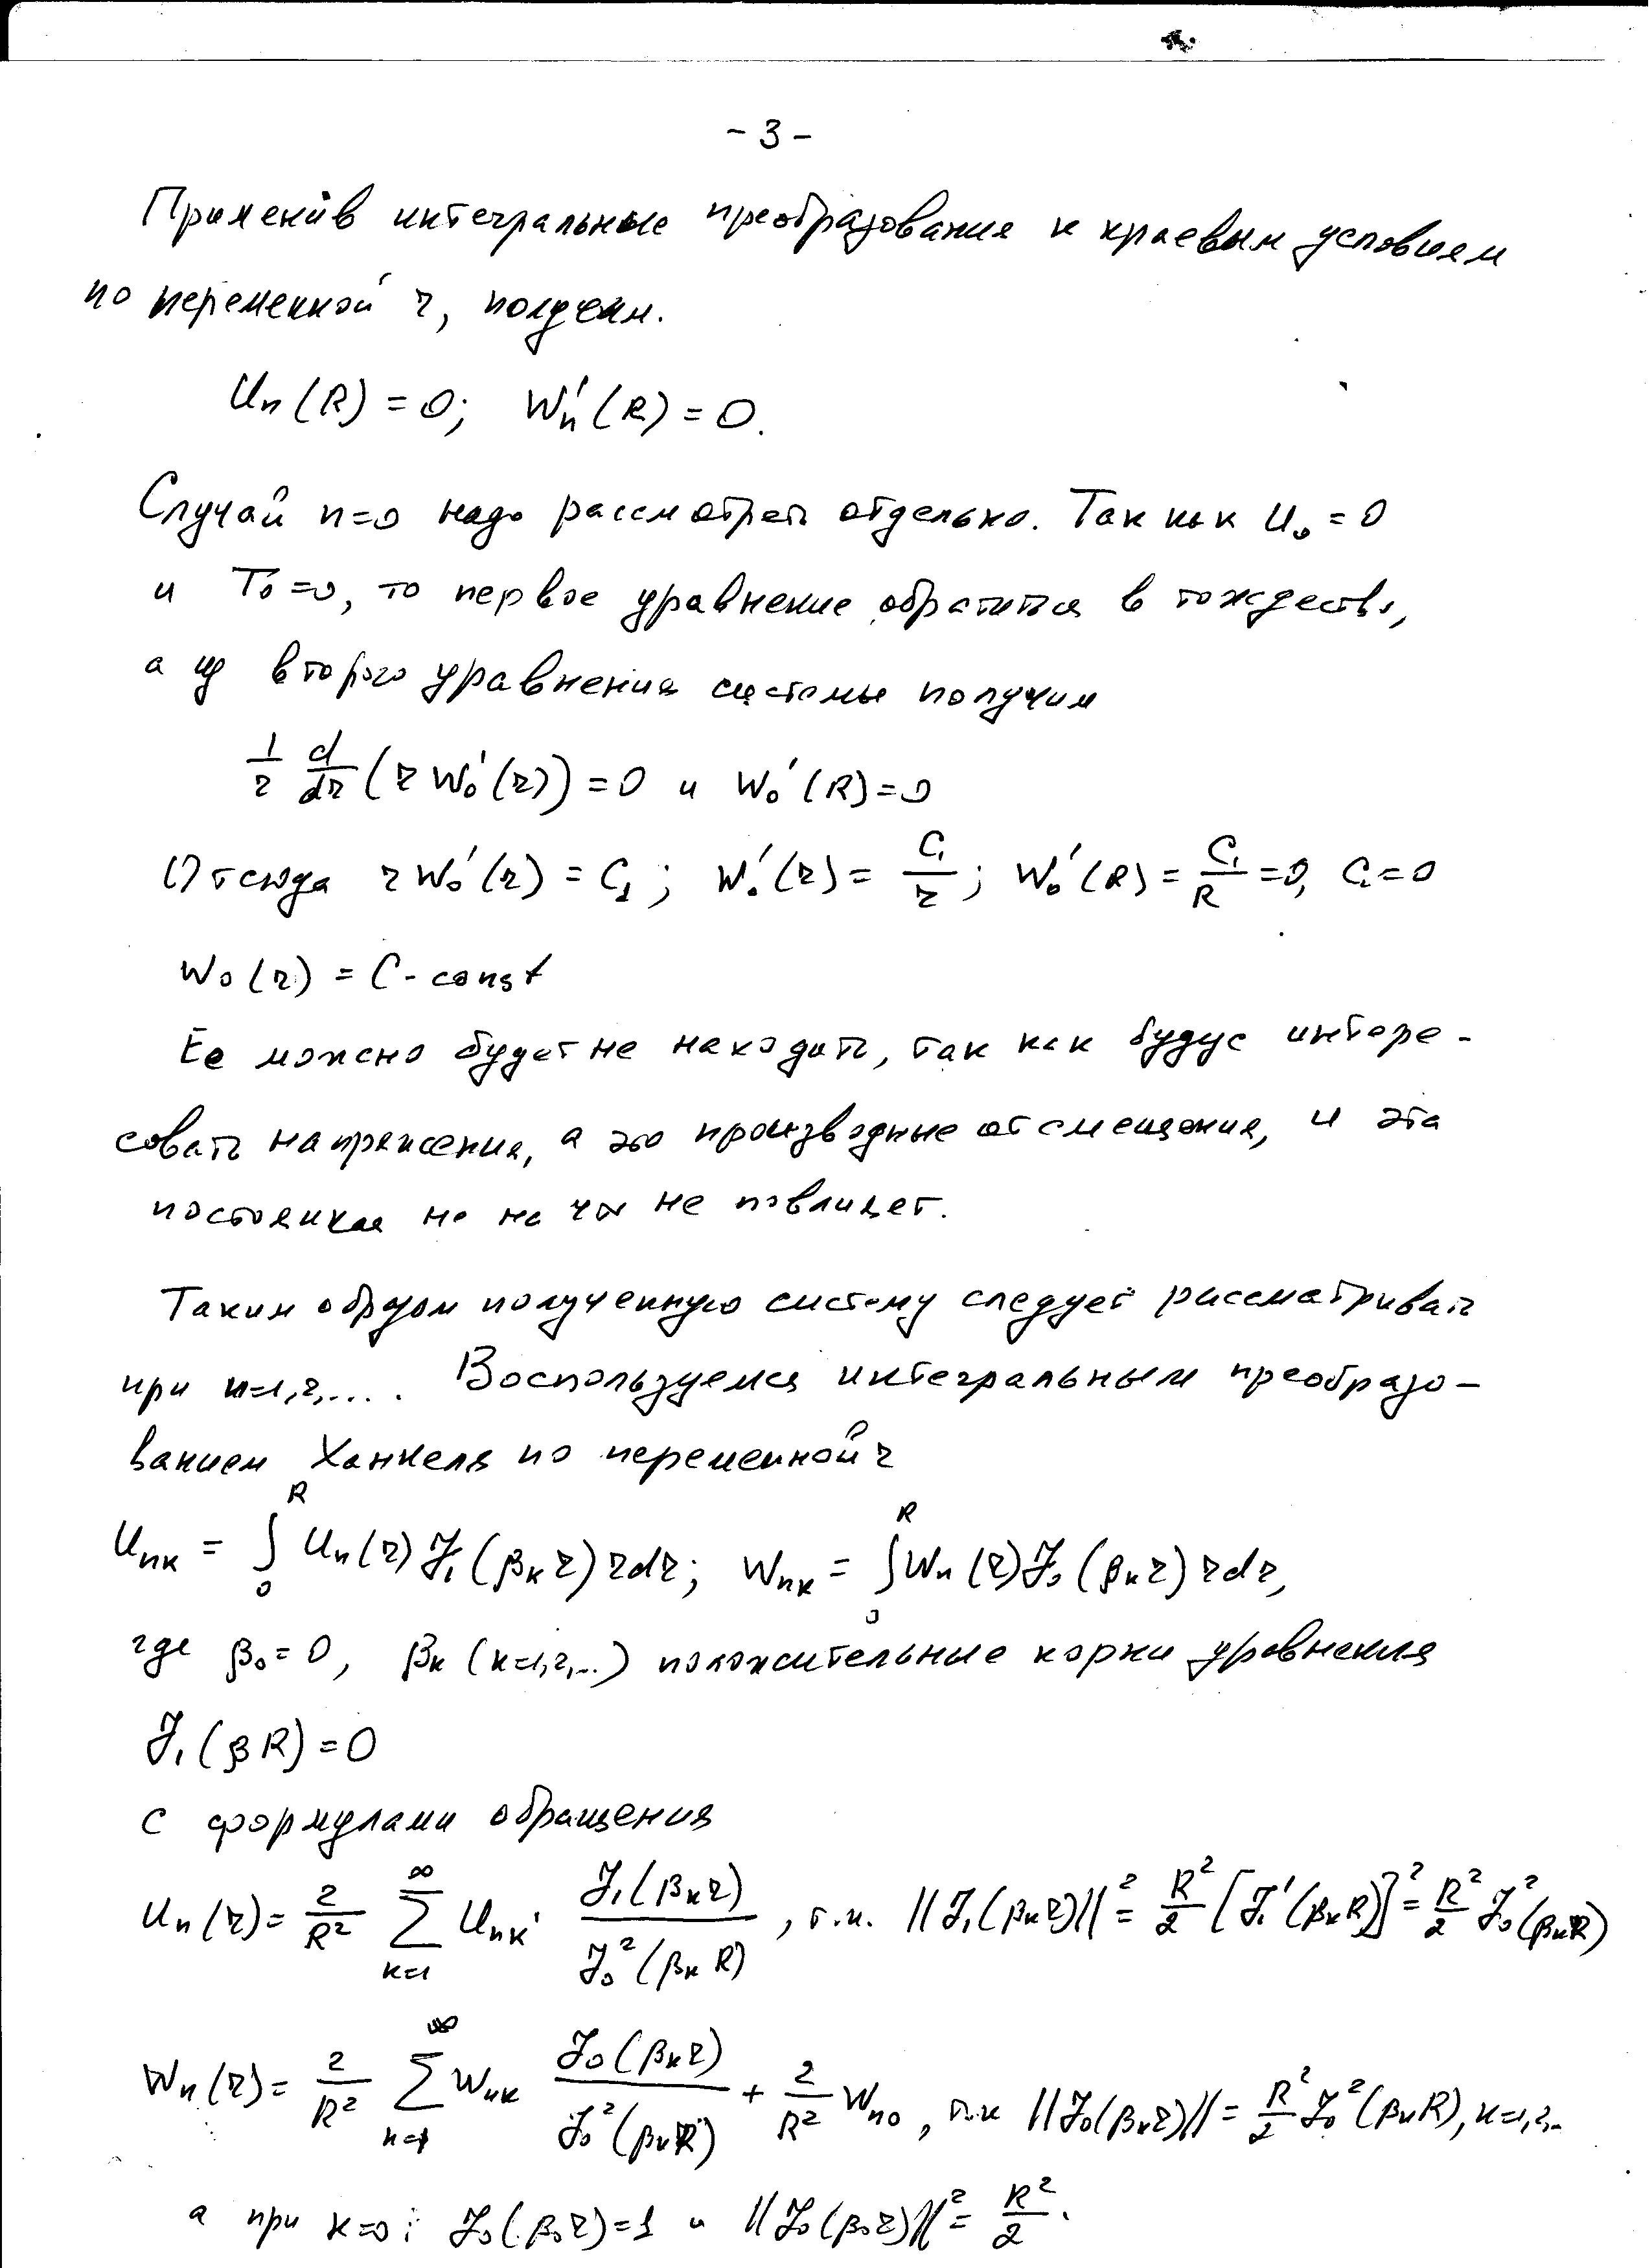 - 3 -
Применив интегральные преобразования к краевым условиям
по переменной r, получим.
Uₙ(R) = 0; Wₙ'(R) = 0.
Случай n=0 надо рассмотреть отдельно. Так как U₀ = 0
и T₀ = 0, то первое уравнение обратится в тождество,
а из второго уравнения системы получим
1/r d/dr (r W₀'(r)) = 0 и W₀'(R) = 0
Отсюда r W₀'(r) = C₁; W₀'(r) = C₁/r; W₀'(R) = C₁/R = 0, C₁ = 0
W₀(r) = C - const
Ее можно будет не находить, так как будус интере-
совать напряжения, а это производные от смещения, и эта
постоянная не на что не повлияет.
Таким образом полученную систему следует рассматривать
при n=1,2,.... Воспользуемся интегральным преобразо-
ванием Ханкеля по переменной r
Uₙₖ = ∫₀ᴿ Uₙ(r) J₁(βₖr) r dr; Wₙₖ = ∫₀ᴿ Wₙ(r) J₀(βₖr) r dr,
где β₀ = 0, βₖ (k=1,2,...) положительные корни уравнения
J₁(βR) = 0
с формулами обращения
Uₙ(r) = 2/R² ∑ₖ₌₁^∞ Uₙₖ · J₁(βₖr)/J₀²(βₖR), т.к. ||J₁(βₖr)||² = R²/2 [J₁'(βₖR)]² = R²/2 J₀²(βₖR)
Wₙ(r) = 2/R² ∑ₖ₌₁^∞ Wₙₖ J₀(βₖr)/J₀²(βₖR) + 2/R² Wₙ₀, т.к ||J₀(βₖr)|| = R²/2 J₀²(βₖR), k=1,2,..
а при k=0: J₀(β₀r) = 1 и ||J₀(β₀r)||² = R²/2.